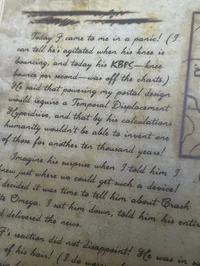 Today F came to me in a panic! (I
can tell he's agitated when his knee is
bouncing, and today his KBPS—knee
bounce per second—was off the charts.)
He said that powering my portal design
would require a Temporal Displacement
Hyperdrive, and that by his calculations
humanity wouldn't be able to invent one
of those for another ten thousand years!
Imagine his surprise when I told him I
knew just where we could get such a device!
decided it was time to tell him about Crash
Site Omega. I sat him down, told him his entire
delivered the news.
F's reaction did not disappoint! He was in
of his hair! (I do